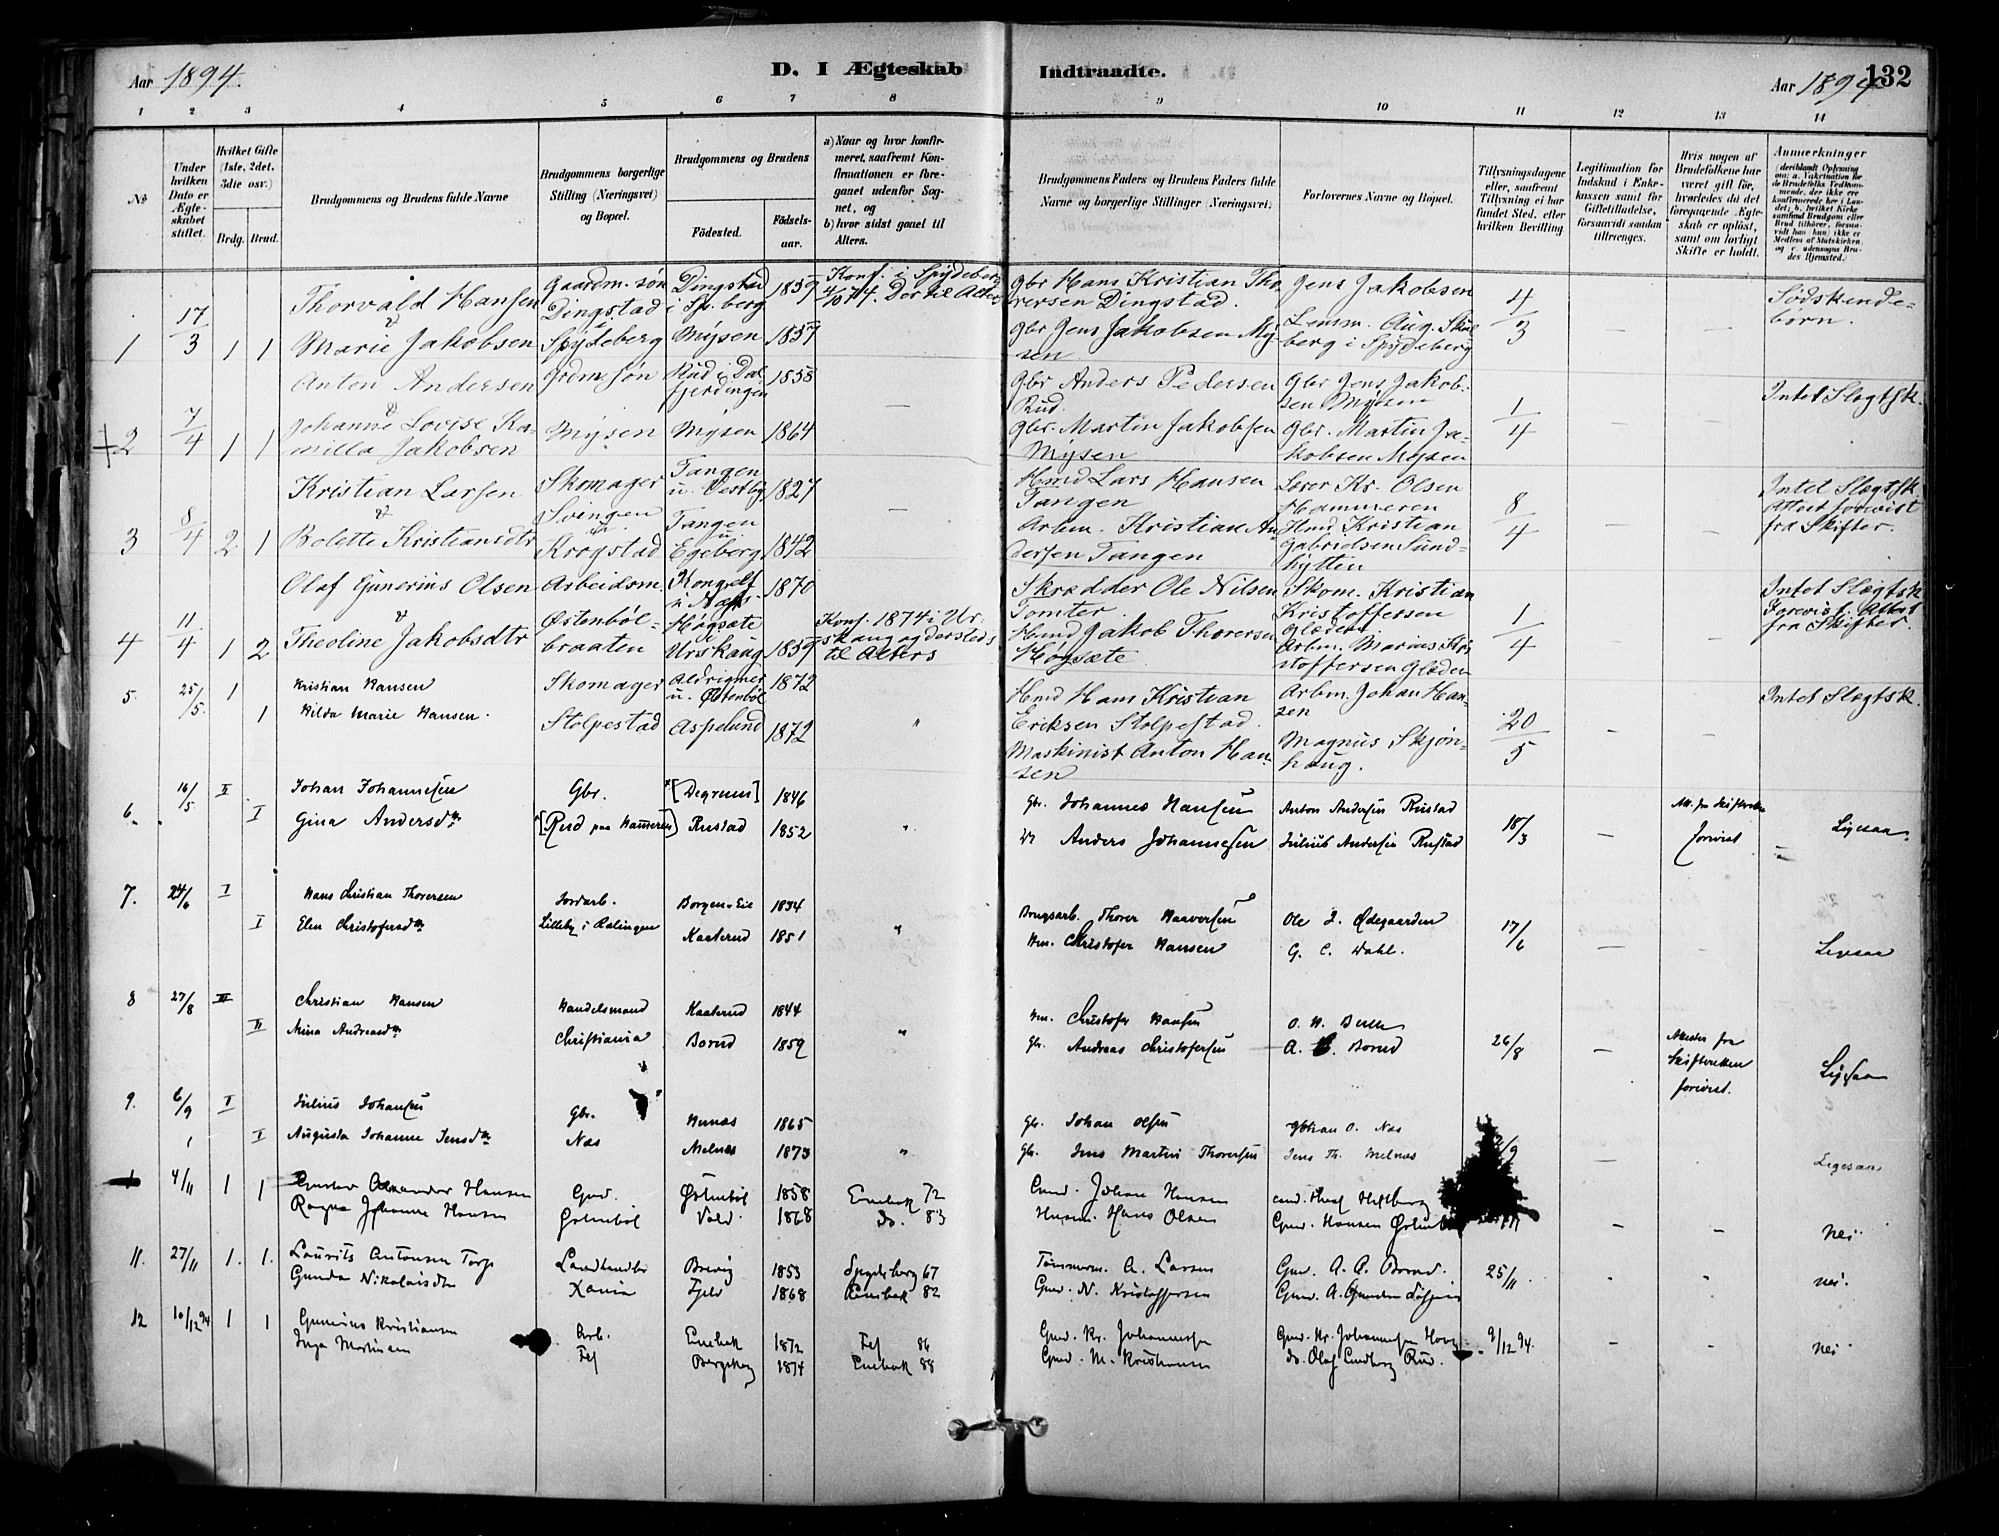 Aar 1894.
D. I Ægteskab Indtraadte.
Aar 1894
132
1 2 3 4 5 6 7 8 9 10 11 12 13 14
No
Under hvilken Dato er Ægteskabet stiftet.
Hvilket Gifte (1ste, 2det, 3die osv.)
Brdg. Brud.
Brudgommens og Brudens fulde Navne
Brudgommens borgerlige Stilling (Næringsvei) og Bopæl.
Brudgommens og Brudens
Fødested. Fødselsaar.
a) Naar og hvor konfirmeret, saafremt Konfirmationen er foregaaet udenfor Sognet, og
b) hvor sidst gaaet til Alters.
Brudgommens Faders og Brudens Faders fulde Navne og borgerlige Stillinger (Næringsvei)
Forlovernes Navne og Bopæl.
Tillysningsdagene eller, saafremt Tillysning ei har fundet Sted, efter hvilken Bevilling.
Legitimation for Indskud i Enkekassen samt for Giftetilladelse, forsaavidt saadan tiltrænges.
Hvis nogen af Brudefolkene har været gift før, hvorledes da det foregaaende Ægteskab er opløst, samt om lovligt Skifte er holdt.
Anmerkninger
1 17/3 1 1
Thorvald Hansen
&
Marie Jakobsen
Gaardm. søn
Dingstad
Spydeberg
Dingstad i Sp.berg 1859
Mysen 1857
Konf. i Spydeberg 4/10 74. Der til Alters
Gbr Hans Kristian Thorersen Dingstad.
Gbr Jens Jakobsen Mysen
Jens Jakobsen
Lensm. Aug. Skulberg i Spydeberg
4/3 — —
Sødskendebørn.
2 7/4 1 1
Anton Andersen
&
Johanne Lovise Kamilla Jakobsen
Grdm. søn
Mysen
Rud i Dalfjerdingen 1858
Mysen 1864
—
Gbr Anders Pedersen Rud.
Gbr. Martin Jakobsen Mysen
Gbr Jens Jakobsen Mysen
Gbr. Martin Jakobsen Mysen
1/4 — —
Intet Slægtsk.
3 8/4 2 1
Kristian Larsen
&
Bolette Kristiansdtr
Skomager
Svengen
Krogstad
Tangen u. Vestby 1827
Tangen u. Egeberg 1842
—
Hmd Lars Hansen Tangen
Arbm. Kristian Andersen Tangen
Kr. Olsen Hammeren
Hmd Kristian Gabrielsen Sundhytten
8/4 — —
Intet Slægtsk
Attest forevist fra Skifter.
4 11/4 1 2
Olaf Gunerius Olsen
&
Theoline Jakobsdtr
Arbeidsm.
Østenbølbraaten
1870
Høgsæte Urskaug 1859
Konf. 1874 i Urskaug og dersteds til Alters
Skrædder Ole Nilsen Tomter.
Hmd Jakob Thorersen Høgsæte
Skom. Kristian Kristoffersen Glæden
Arbm. Marius Kristoffersen Glæden
1/4 — —
Intet Slægtsk
Forevist Attest fra Skifter.
5. 25/5. 1 1
Kristian Hansen
Hilda Marie Hansen.
Skomager
Stolpestad
u. Østenbøl 1872
Aspelund 1872
"
Hmd Hans Kristian Eriksen Stolpestad.
Maskinist Anton Hansen
Arbm. Johan Hansen
Magnus Skjønhaug.
20/5 — —
Intet Slægtsk.
6. 16/5 II I
Johan Johannesen
Gina Andersdtr
Gbr.
[Degrum] 1846
[Rud paa Hameren] Rustad 1852
"
Gbr. Johannes Hansen
Anders Johannesen
Anton Andersen Rustad
Julius Andersen Rustad
18/3 —
forevist
Ligesaa
7. 24/6 I I
Hans Christian Thorersen
Elen Christofersdtr
Jordarb.
Lilleby i Rælingen
Borgen-Eie 1834
Kaaterud 1851
"
Brugsarb. Thorer Haaversen
Hm. Christofer Hansen
Ole J. Ødegaarden
G. C. Dahl.
17/6 — —
Ligesaa
8 27/8 III II
Christian Hansen
Mina Andreasdtr
Handelsmand
Christiania
Kaaterud 1844
Borud 1859
"
Hm. Christofer Hansen
Gbr. Andreas Christofersen
A. C. Borud
26/8 —
Attester fra Skifteretten forevist.
Ligesaa
9. 6/9 I I
Julius Johansen
Augusta Johanne Jensdtr
Gbr.
Næs
1865
Melnæs 1873
"
Gbr. Johan Olsen
Gbr. Jens Martin Thoresen
Johan O. Næs
Jens Th. Melnæs
2/9 —
Ligesaa
4/11 1 1
Gustav Alexander Hansen
Ragna Johanne Hansen
Gmd.
Østenbøl 1858
Vold. 1868
Enebak 72
do. 83
Gmd. Johan Hansen
Husm. Hans Olsen
Gmd. Hansen
— —
nei
11. 27/11 1. 1.
Laurits Antonsen Torp
Gunda Nikolaisdtr
Landhandler
Xania
Brevig 1853
Fjeld 1868
Spydeberg 67
Enebak 82
Tømmerm. A. Larsen
Gmd. N. Kristoffersen
Gmd. A. C. Borud.
25/11.
nei.
12 10/12 94 1 1
Gunerius Kristiansen
Inga Martinsen
Arb.
Tej
Enebak 1872
1874
Tej 86
Enebak 88
Gmd. Kr. Johannesen
Gmd. M. Kristiansen
Gmd. Kr. Johannesen
do. Olaf Lundberg Rud.
9/12 94. — —
nei